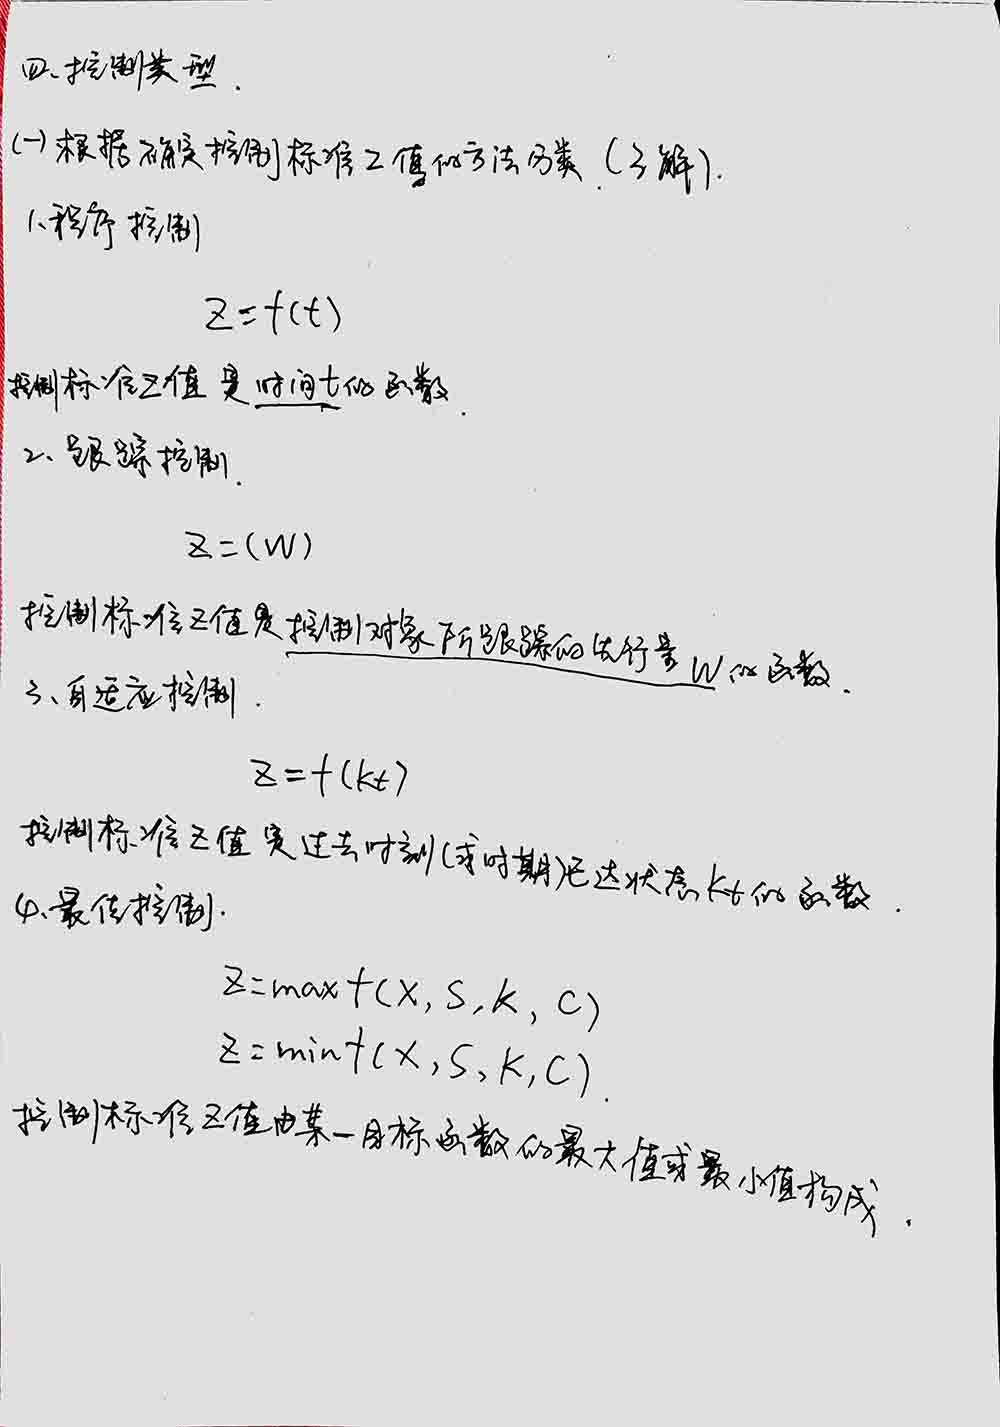 四、控制类型.
(一)根据确定控制标准Z值的方法分类.(了解).
1、程序控制
Z=f(t)
控制标准Z值是时间t的函数.
2、跟踪控制.
Z=(W)
控制标准Z值是控制对象所跟踪的先行量W的函数.
3、自适应控制.
Z=f(Kt)
控制标准Z值是过去时刻(或时期)已达状态Kt的函数.
4、最佳控制.
Z=maxf(X,S,K,C)
Z=minf(X,S,K,C).
控制标准Z值由某一目标函数的最大值或最小值构成.